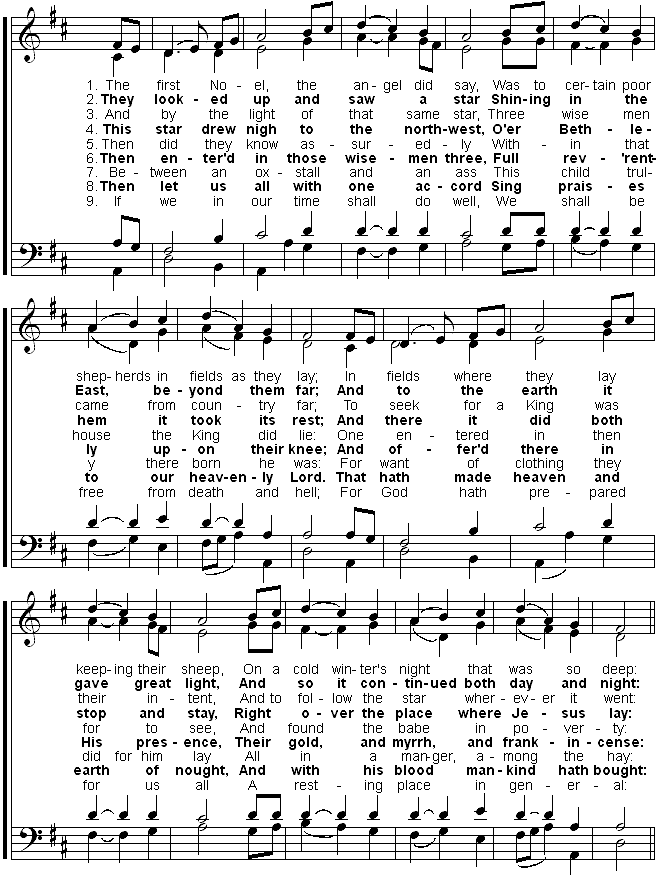 1. The first No - el, the an - gel did say, Was to cer - tain poor
2. They look - ed up and saw a star Shin - ing in the
3. And by the light of that same star, Three wise men
4. This star drew nigh to the north - west, O'er Beth - le -
5. Then did they know as - sur - ed - ly With - in that
6. Then en - ter'd in those wise - men three, Full rev - 'rent-
7. Be - tween an ox - stall and an ass This child tru-
8. Then let us all with one ac - cord Sing prais - es
9. If we in our time shall do well, We shall be
shep-herds in fields as they lay; In fields where they lay
East, be - yond them far; And to the earth it
came from coun - try far; To seek for a King was
hem it took its rest; And there it did both
house the King did lie: One en - tered in then
ly up - on their knee; And of - fer'd there in
y there born he was: For want of clothing they
to our heav-en - ly Lord. That hath made heaven and
free from death and hell; For God hath pre - pared
keep-ing their sheep, On a cold win-ter's night that was so deep:
gave great light, And so it con - tin-ued both day and night:
their in - tent, And to fol - low the star wher - ev - er it went:
stop and stay, Right o - ver the place where Je - sus lay:
for to see, And found the babe in po - ver - ty:
His pres - ence, Their gold, and myrrh, and frank - in - cense:
did for him lay All in a man-ger, a - mong the hay:
earth of nought, And with his blood man - kind hath bought:
for us all A rest - ing place in gen - er - al: